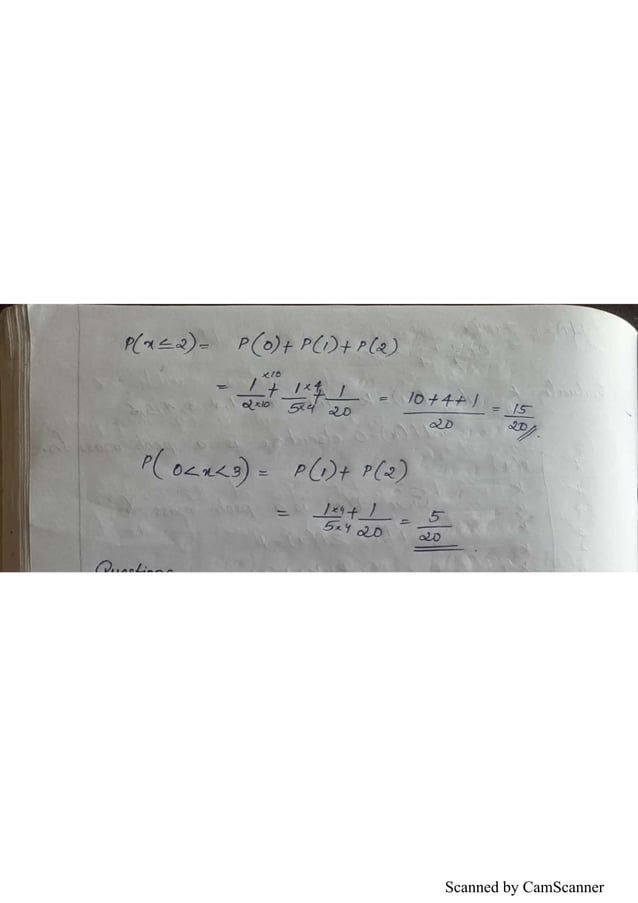 P(x≤2) = P(0) + P(1) + P(2)
= 1×10/2×10 + 1×4/5×4 + 1/20 = 10+4+1/20 = 15/20 //.
P(0<x<3) = P(1) + P(2)
= 1×4/5×4 + 1/20 = 5/20.
Questions
Scanned by CamScanner